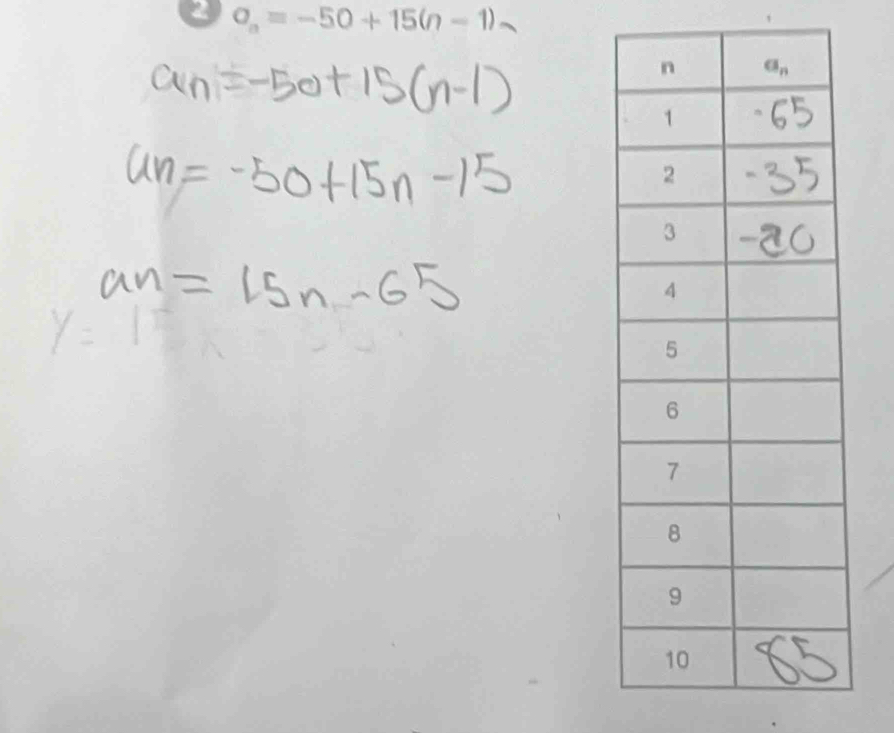 2 aₙ = -50 + 15(n - 1)
an = -50 + 15(n-1)
an = -50 + 15n - 15
an = 15n - 65
y = 15
n aₙ
1 -65
2 -35
3 -20
4
5
6
7
8
9
10 85